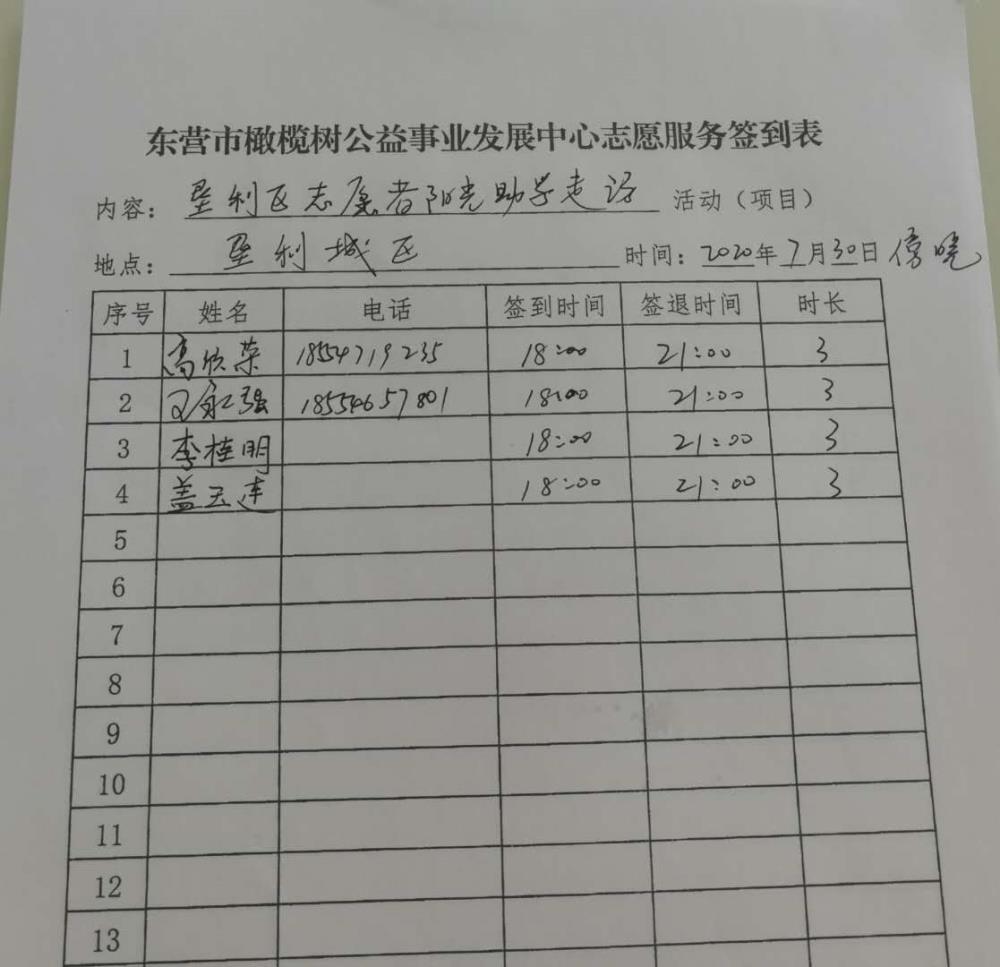 东营市橄榄树公益事业发展中心志愿服务签到表
内容： 垦利区志愿者阳光助学走访 活动（项目）
地点： 垦利城区 时间：2020年7月30日 傍晚
序号 姓名 电话 签到时间 签退时间 时长
1 高欣荣 18554719235 18:00 21:00 3
2 王永强 18554657801 18:00 21:00 3
3 李桂明 18:00 21:00 3
4 盖玉连 18:00 21:00 3
5
6
7
8
9
10
11
12
13